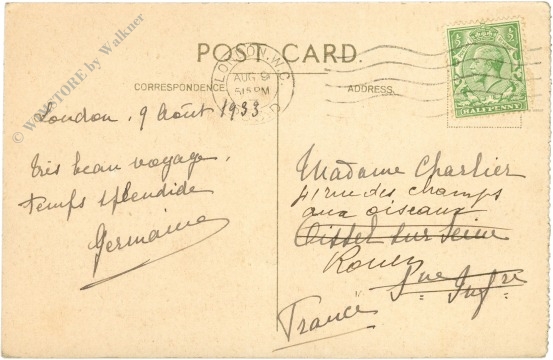 © WOMSTORE by Walkner
POST CARD.
CORRESPONDENCE
ADDRESS.
LONDON. W.C.
AUG 9
515 PM
½ ½
HALFPENNY
London, 9 Août 1933
très beau voyage,
temps splendide
Germaine
Madame Charlier
41 rue des champs
aux oiseaux
Oissel sur Seine
Rouen
Sne Infre
France